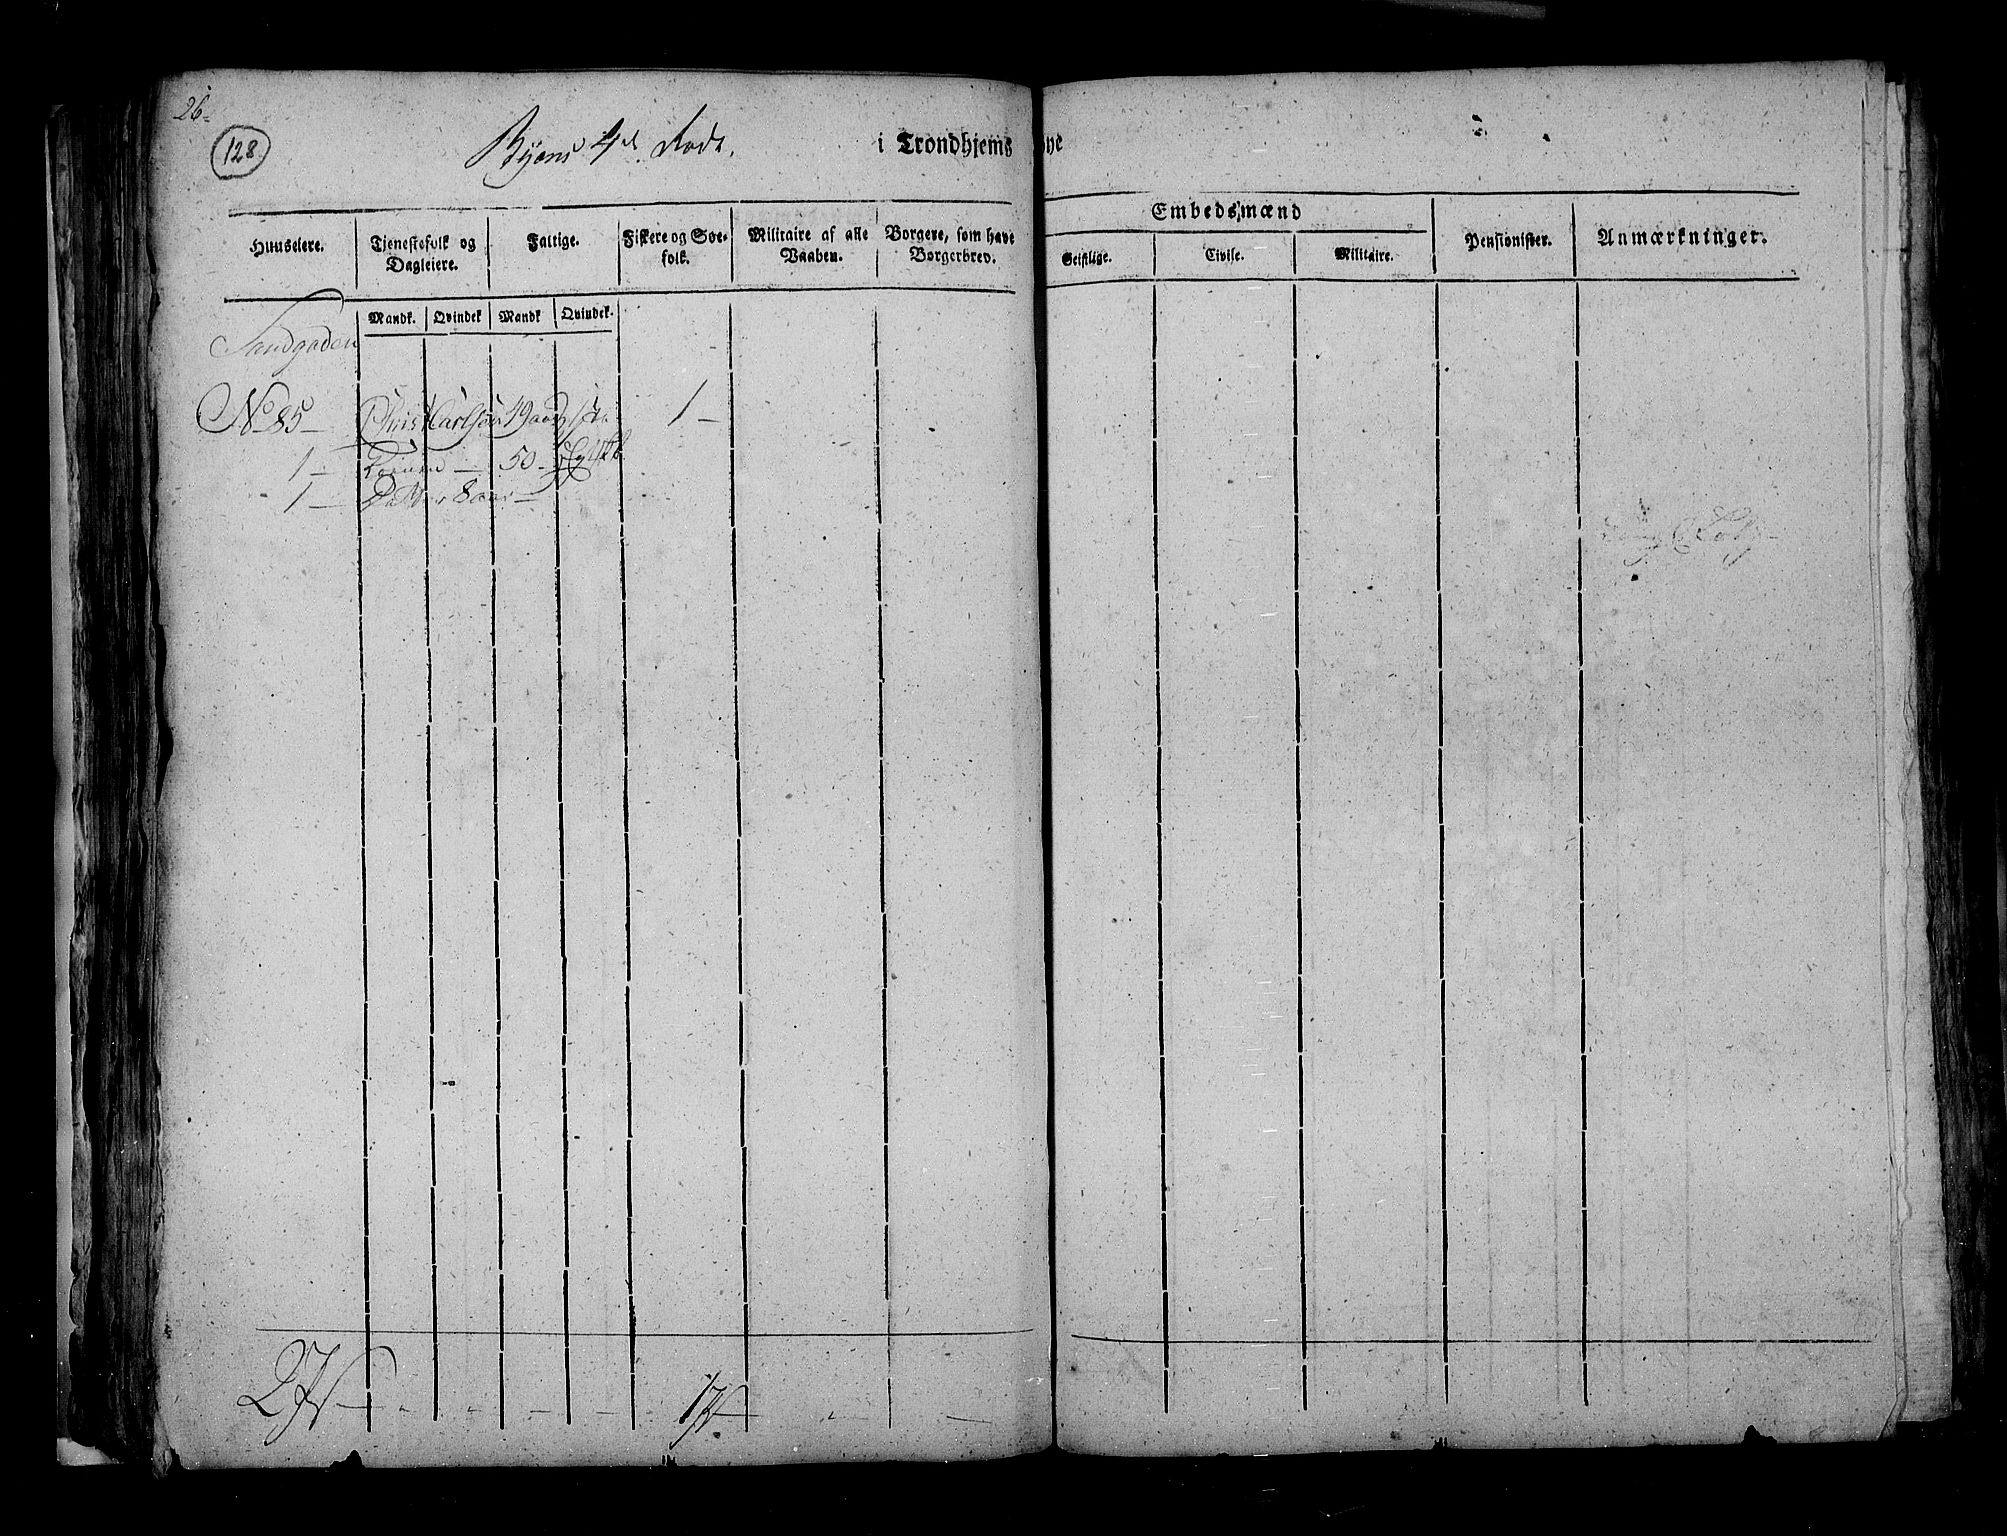 26
128
Byens 4de Rode.
i Trondhjems Bye
Huuseiere.
Tjenestefolk og Dagleiere.
Fattige.
Fiskere og Søe-folk.
Militaire af alle Vaaben.
Borgere, som have Borgerbrev.
Embedsmænd
Geistlige.
Civile.
Militaire.
Pensionister.
Anmærkninger.
Mandk. Qvindek Mandk Qvindek.
Sandgaden
No 85 — Carlsen 49 aar 1 —
1 — Konen — 50 —
1 — Datter 8 aar —
2
1